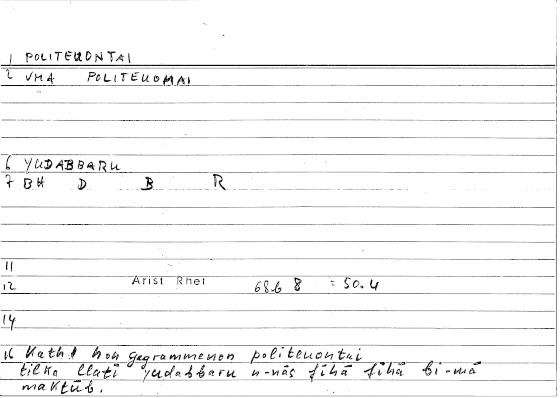 1 POLITEUONTAI
2 VMA POLITEUOMAI
6 YUDABBARU
7 BH D B R
11
12 Arist Rhet 68b 8 = 50.4
14
16 Kath' hon gegrammenon politeuontai
tilka llatī yudabbaru n-nās fīhā fīhā bi-mā
maktūb.